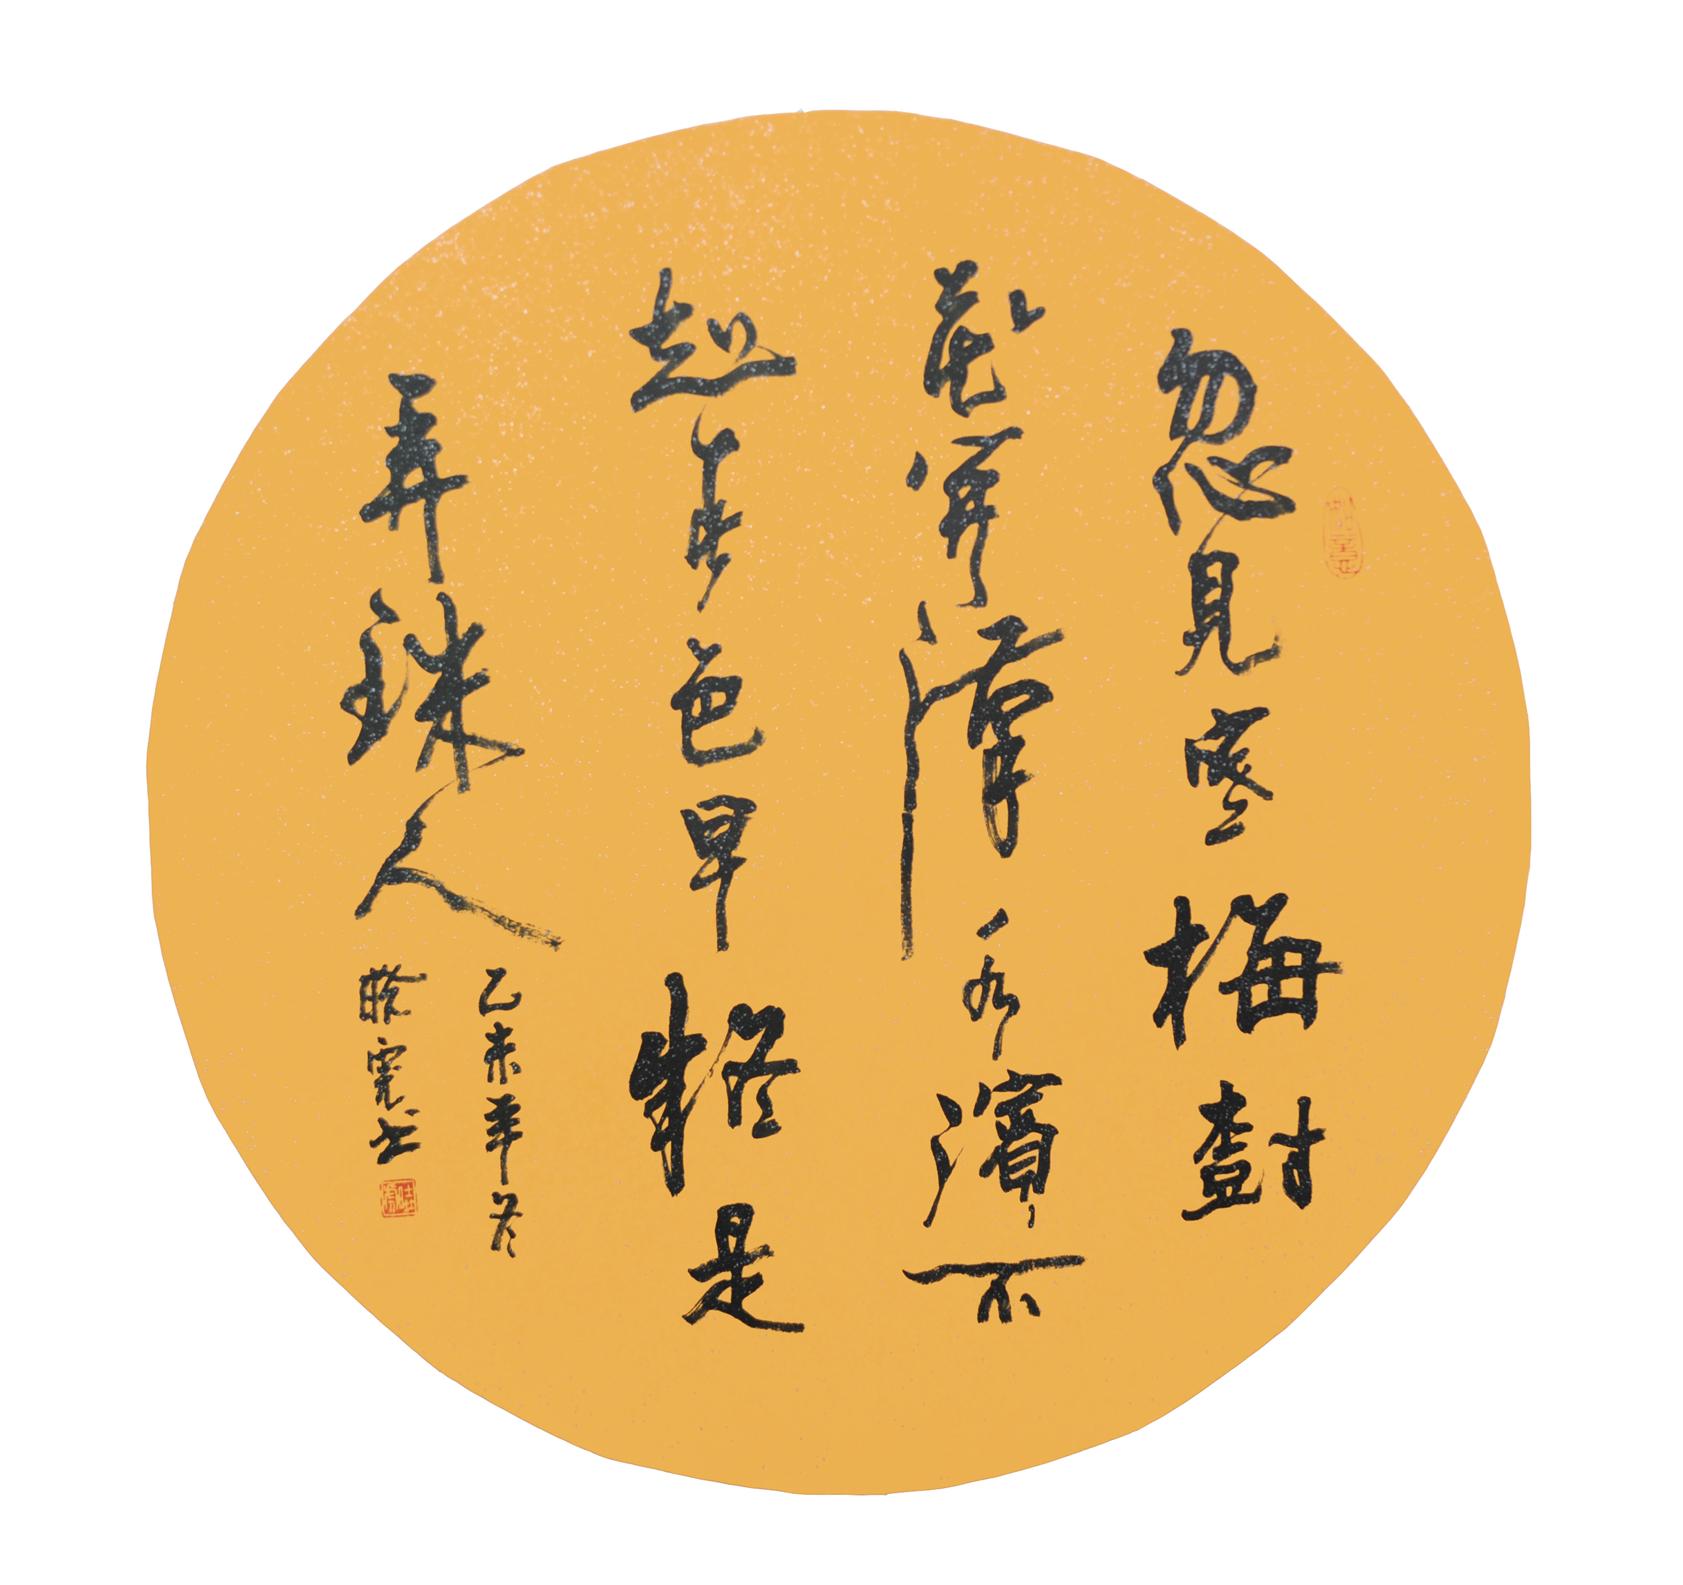 忽見寒梅樹
花開漢水濱不
知春色早疑是
弄珠人
乙未年冬
書